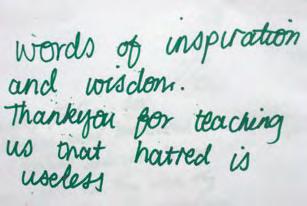 words of inspiration
and wisdom.
Thankyou for teaching
us that hatred is
useless